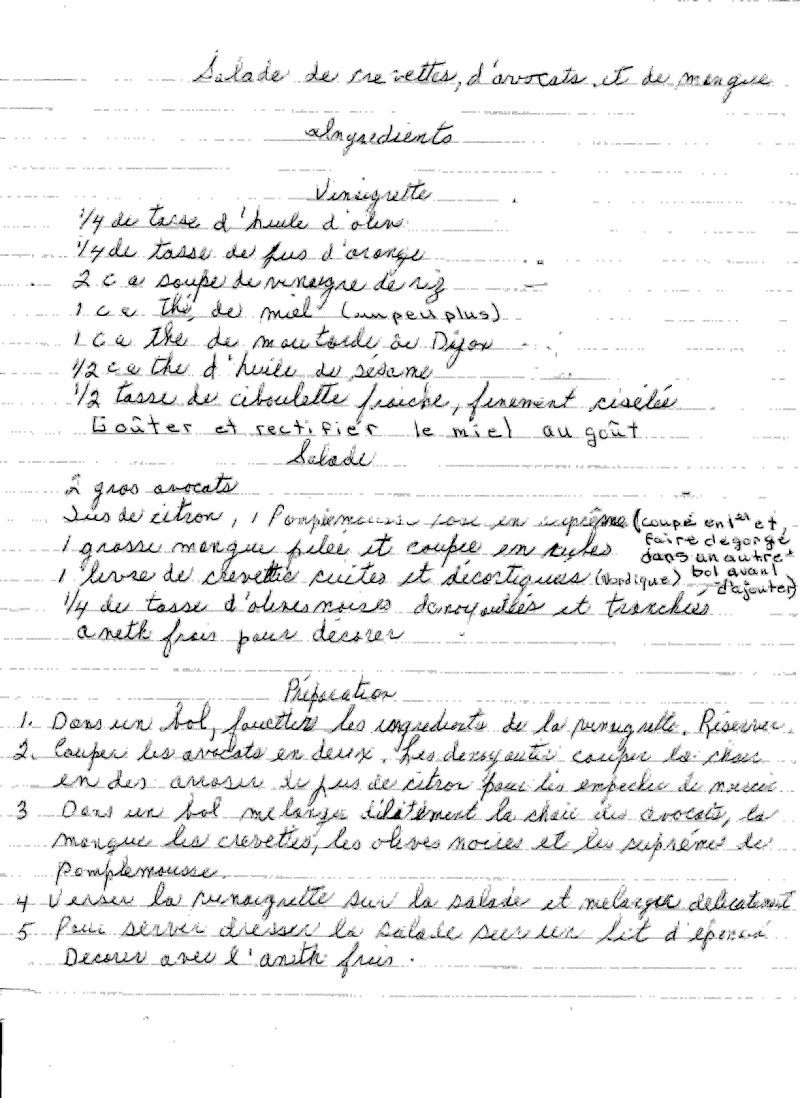 Salade de crevettes, d'avocats et de mangue
Ingredients
Vinaigrette
1/4 de tasse d'huile d'olive
1/4 de tasse de jus d'orange
2 c a soupe de vinaigre de riz
1 c a thé de miel (un peu plus)
1 c a thé de moutarde de Dijon
1/2 c a the d'huile de sésame
1/2 tasse de ciboulette fraiche, finement ciselée
Goûter et rectifier le miel au goût
Salade
2 gros avocats
Jus de citron, 1 Pamplemousse rose en suprême (coupé en et,
faire dégorgé
1 grosse mangue pelée et coupée en cubes
dans un autre
1 livre de crevette cuites et décortiquées (Nordique) bol avant
d'ajouter)
1/4 de tasse d'olives noires dénoyautées et tranchées
aneth frais pour décorer
Préparation
1. Dans un bol, fouetter les ingredients de la vinaigrette. Réserver.
2. Couper les avocats en deux. Les denoyauter couper la chair
en des arroser de jus de citron pour les empecher de noircir
3 Dans un bol melanger délicatement la chair des avocats, la
mangue les crevettes, les olives noires et les suprêmes de
pamplemousse.
4 Verser la vinaigrette sur la salade et melanger delicatement
5 Pour servir dresser la salade sur un lit d'épinard
Decorer avec l'aneth frais.